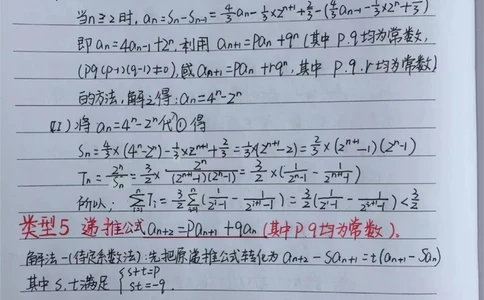 当n≥2时, an=Sn-Sn-1=4/3an-1/3×2^(n+1)+2/3-(4/3an-1-1/3×2^n+2/3)
即an=4an-1+2^n.利用an+1=Pan+q^n(其中P.q均为常数,
(Pq(P-1)(q-1)≠0),或an+1=Pan+rq^n,其中P.q.r均为常数)
的方法,解之得:an=4^n-2^n
(II)将an=4^n-2^n代①得
Sn=4/3×(4^n-2^n)-1/3×2^(n+1)+2/3=1/3×(2^(n+1)-2)=2/3×(2^(n+1)-1)(2^n-1)
Tn=2^n/Sn=3/2×2^n/((2^(n+1)-1)(2^n-1))=3/2×(1/(2^n-1)-1/(2^(n+1)-1))
所以:
类型5 递推公式.an+2=Pan+1+qan(其中P.q均为常数).
解法一(待定系数法):先把原递推公式转化为an+2-San+1=t(an+1-San)
其中s.t满足{s+t=P st=-q.